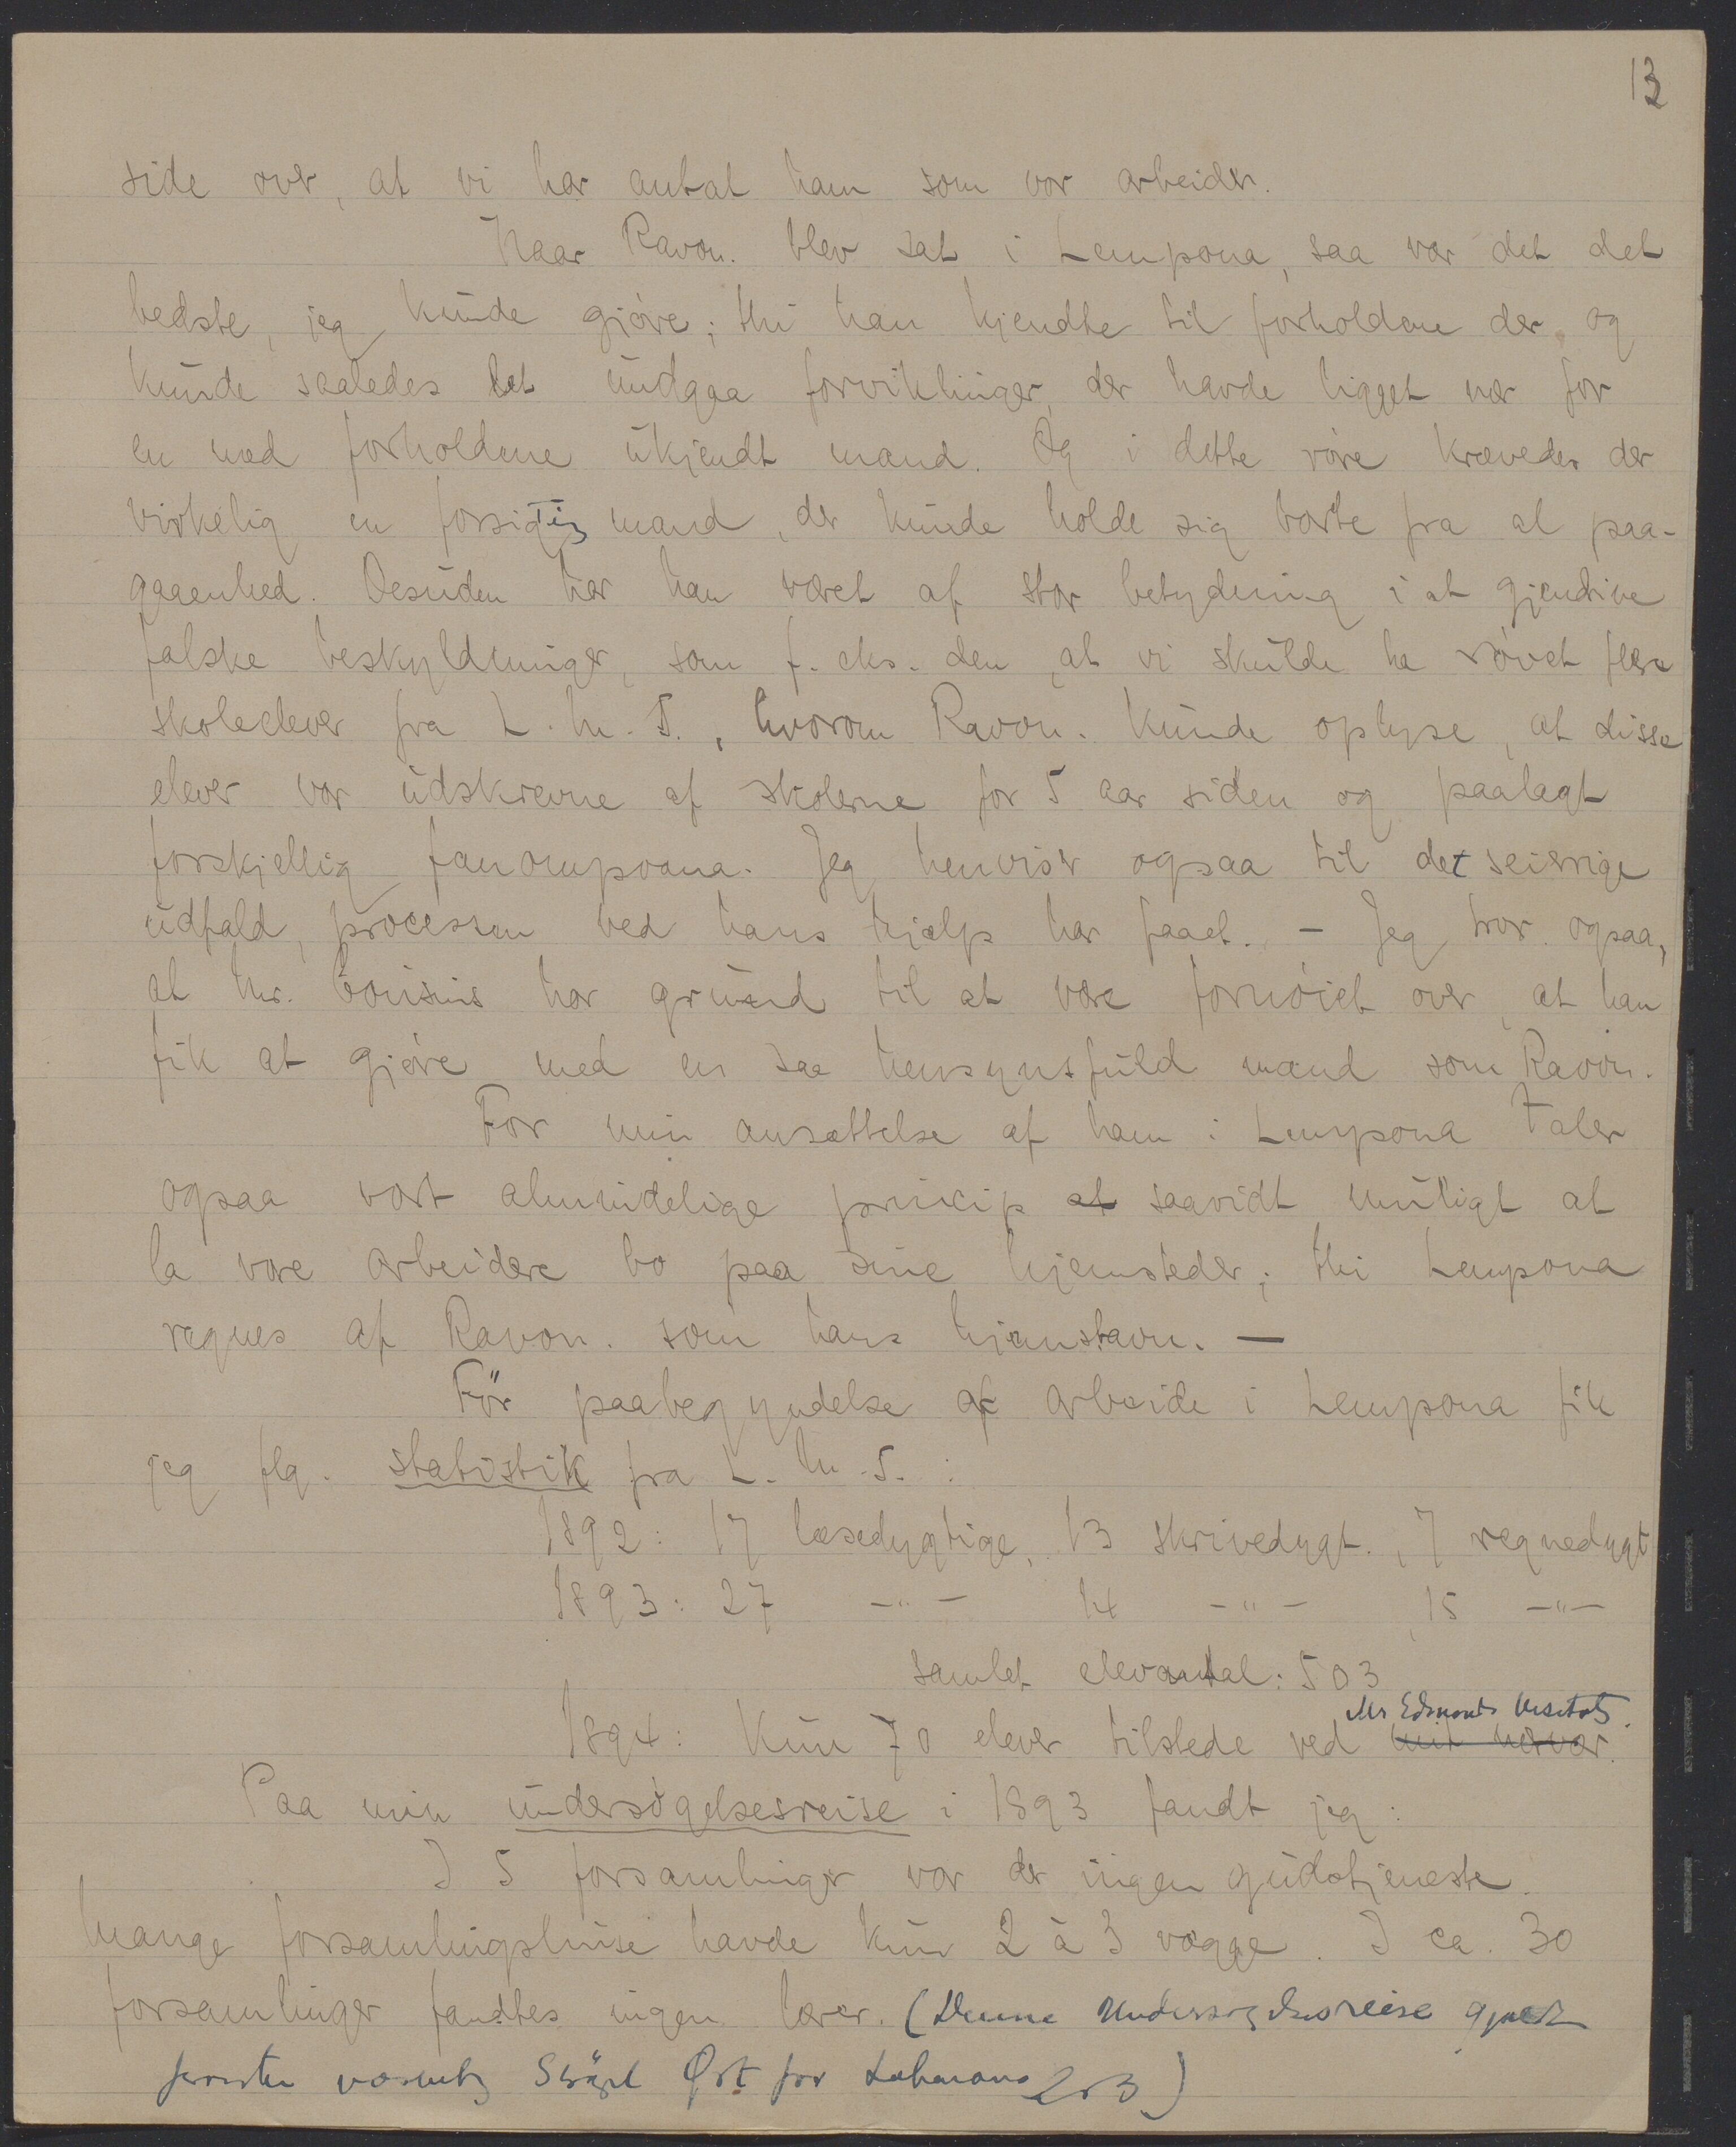 13
side over, at vi har antat ham som vor arbeider.
Naar Ravon. blev sat i Lempona, saa var det det
bedste, jeg kunde gjøre; thi han kjendte til forholdene der, og
kunde saaledes let undgaa forviklinger, der havde ligget nær for
en med forholdene ukjendt mand. Og i dette røre krævedes der
virkelig en forsigtig mand, der kunde holde sig borte fra al paa-
gaaenhed. Desuden har han været af stor betydning i at gjendrive
falske beskyldninger, som f. eks. den, at vi skulde ha røvet flere
skoleelever fra L. M. S., hvorom Ravon. kunde oplyse, at disse
elever var udskrevne af skolerne for 5 aar siden og paalagt
forskjellig fanompoana. Jeg henviser ogsaa til det seierrige
udfald, processen ved hans hjælp har faaet. – Jeg tror ogsaa,
at Mr. Cousins har grund til at være fornøiet over, at han
fik at gjøre med en saa hensynsfuld mand som Ravon.
For min ansættelse af ham i Lempona taler
ogsaa vort almindelige princip at saavidt muligt at
la vore arbeidere bo paa sine hjemsteder; thi Lempona
regnes af Ravon. som hans hjemstavn. —
Før paabegyndelse af arbeide i Lempona fik
jeg flg. statistik fra L. M. S. :
1892: 17 læsedygtige, 13 skrivedygt., 7 regnedygt
1893: 27 –"– 14 –"– , 15 –"–
samlet elevantal: 503
Mr Edmonds Visitats.
1894: Kun 70 elever tilstede ved mit nærvær.
Paa min undersøgelsesreise i 1893 fandt jeg :
I 5 forsamlinger var der ingen gudstjeneste.
Mange forsamlingshuse havde kun 2 à 3 vægge. I ca. 30
forsamlinger fandtes ingen lærer. (Denne Undersøgelsesreise
Øst for